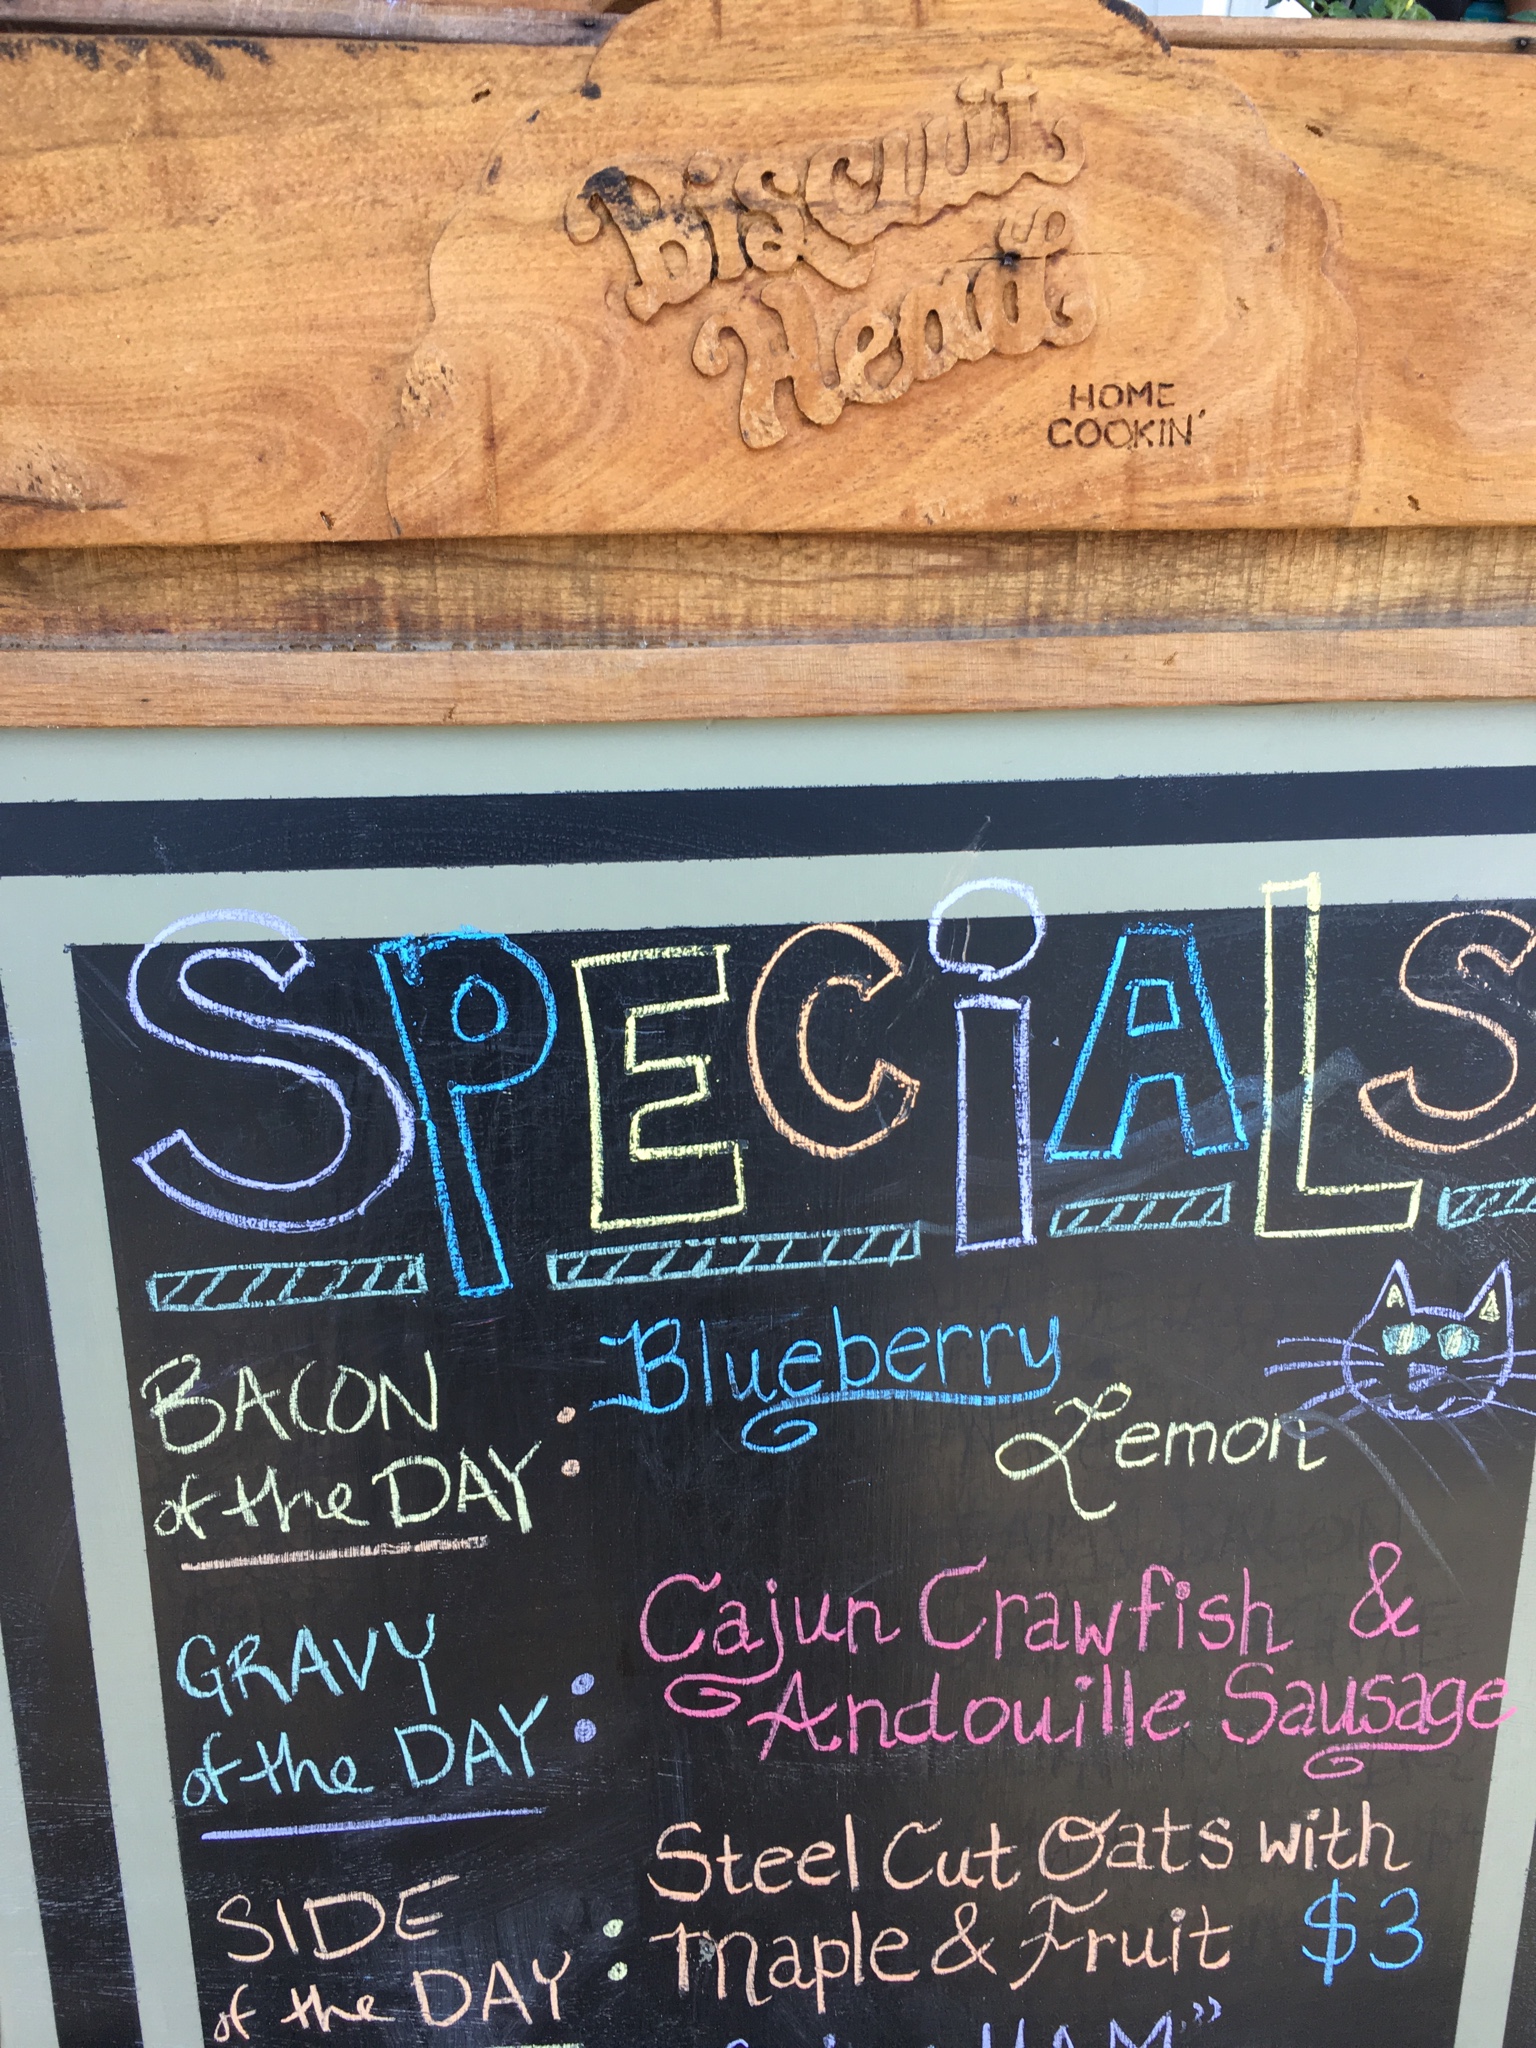 Biscuit
Head
HOME
COOKIN'
SPECiALS
BACON
of the DAY :
Blueberry
Lemon
GRAVY
of the DAY :
Cajun Crawfish &
Andouille Sausage
SIDE
of the DAY :
Steel Cut Oats with
Maple & Fruit $3
HAM"